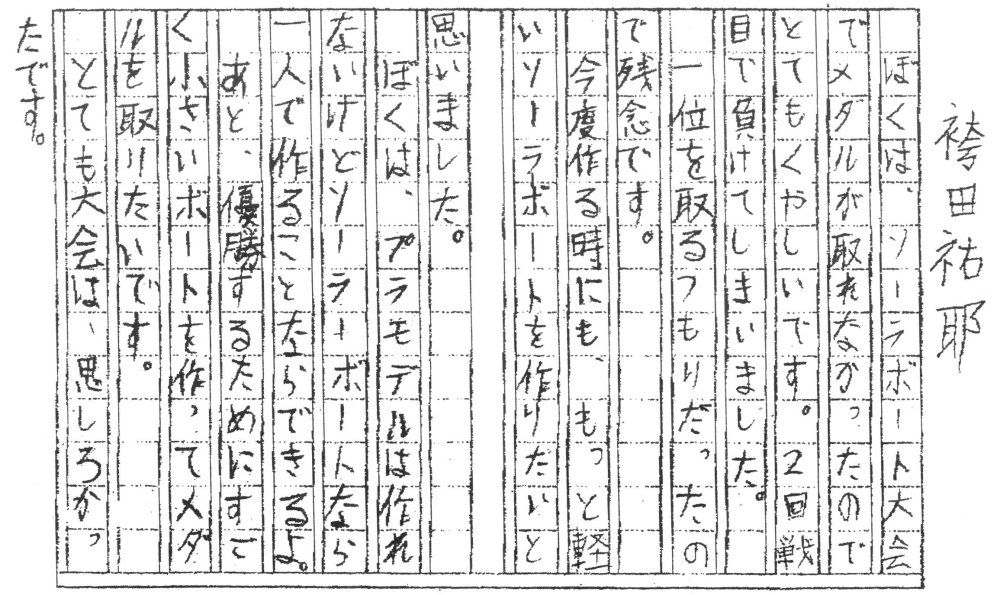 袴田祐耶
ぼくは、ソーラボート大会
でメダルが取れなかったので
とてもくやしいです。2回戦
目で負けてしまいました。
一位を取るつもりだったの
で残念です。
今度作る時にも、もっと軽
いソーラボートを作りたいと
思いました。
ぼくは、プラモデルは作れ
ないけどソーラーボートなら
一人で作ることならできるよ。
あと、優勝するためにすご
く小さいボートを作ってメダ
ルを取りたいです。
とても大会は、思しろかっ
たです。